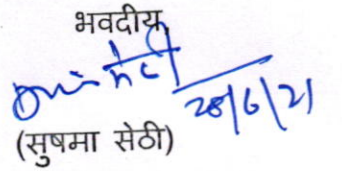 भवदीय,
28/6/21
(सुषमा सेठी)